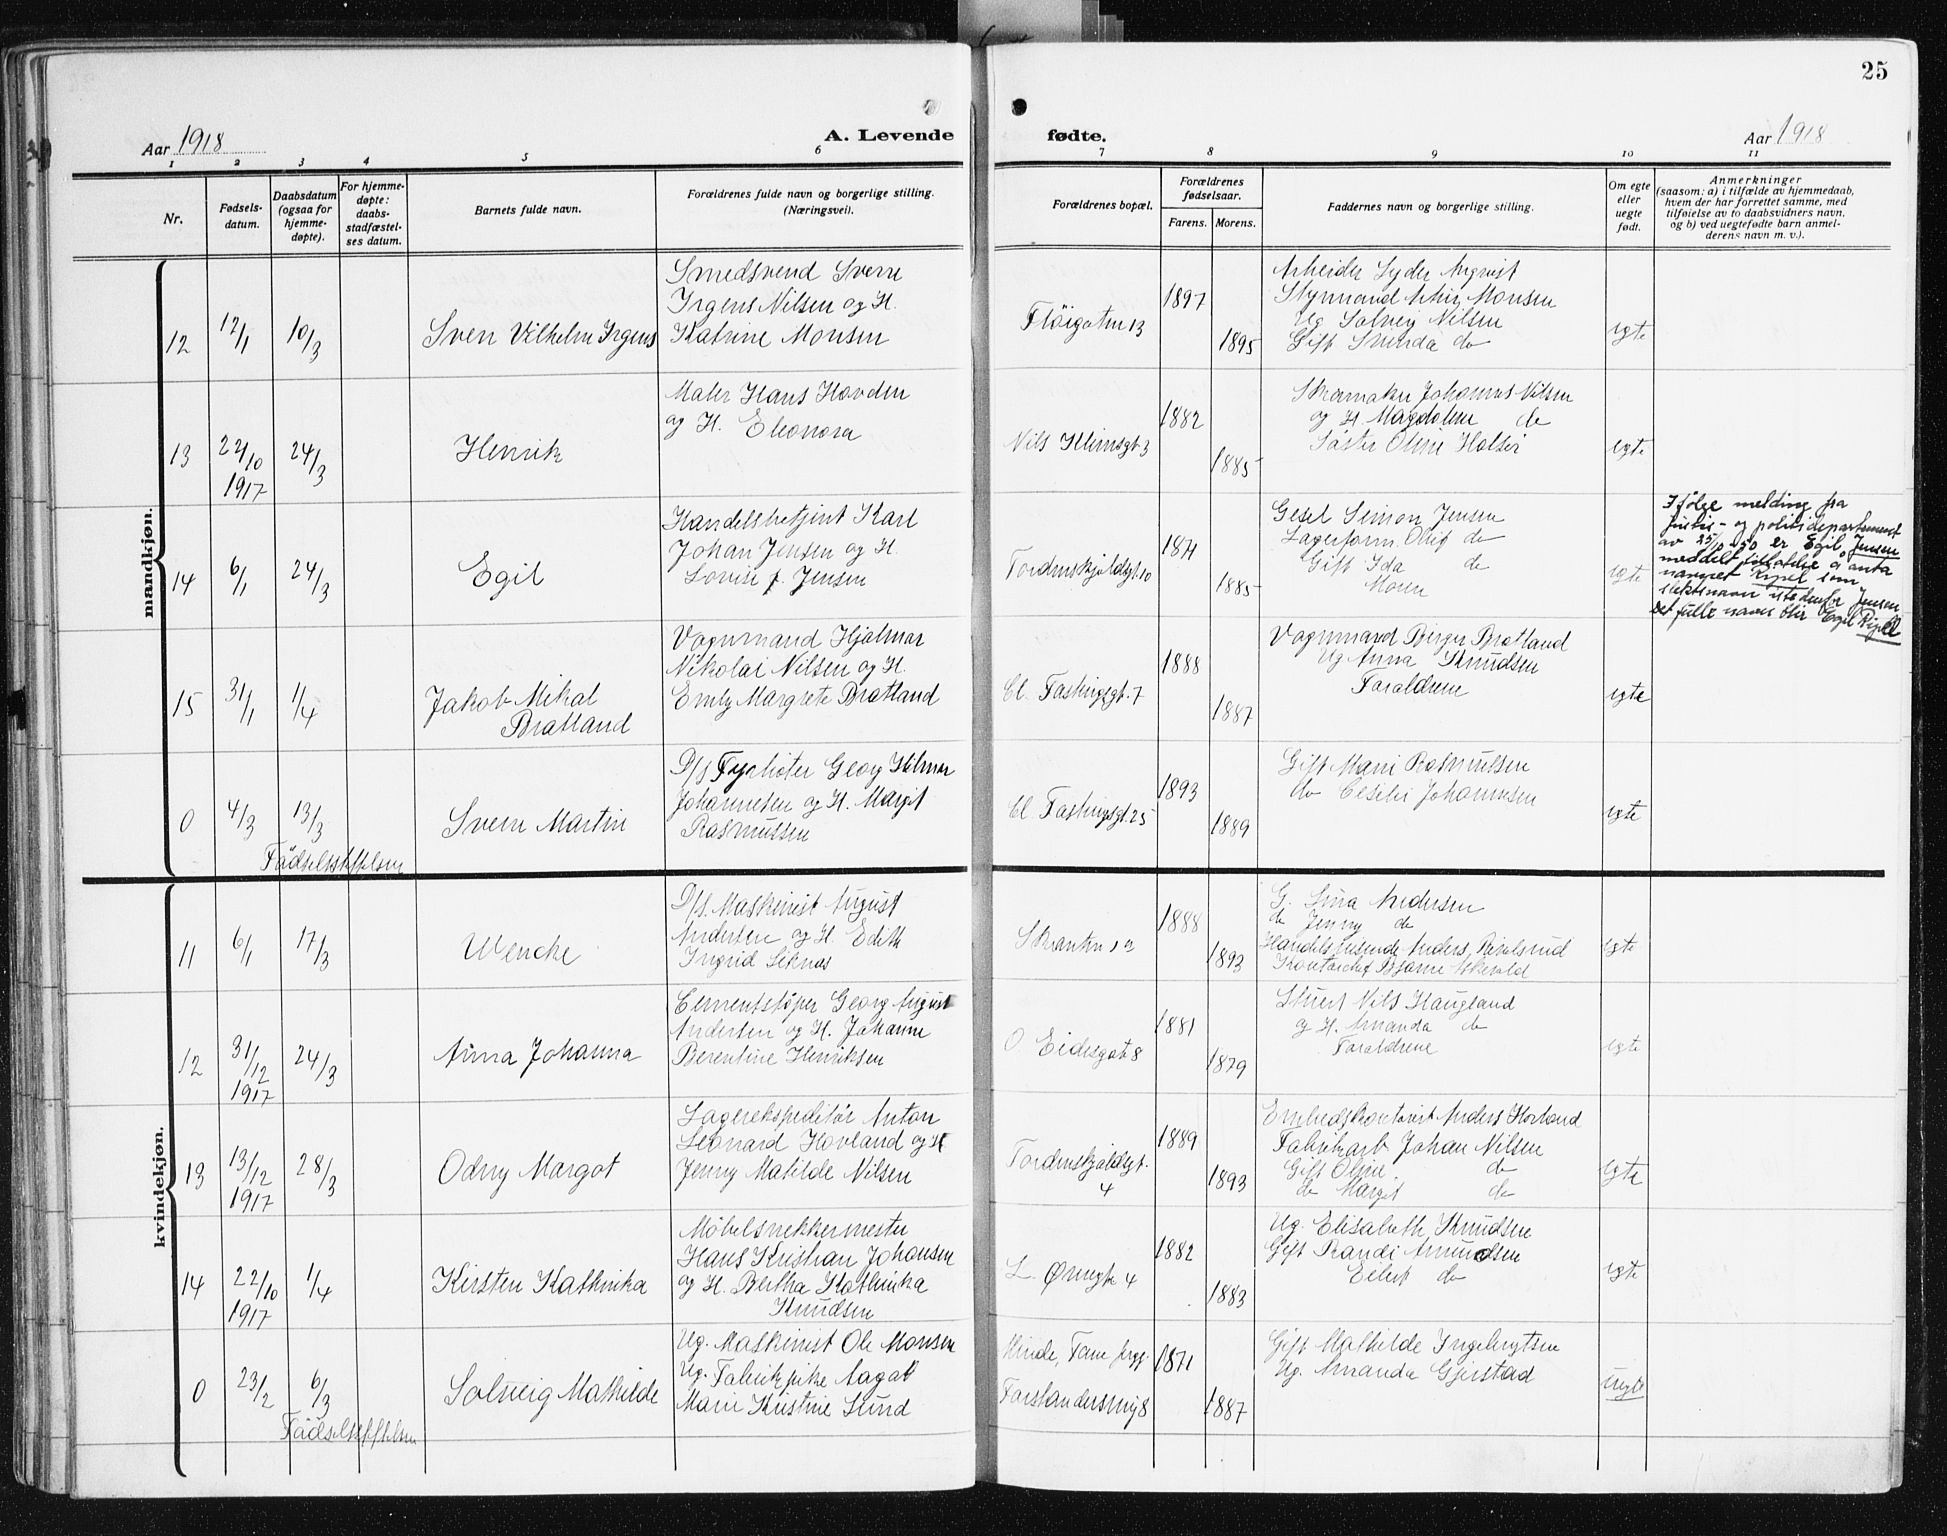 25
Aar 1918
A. Levende
fødte.
Aar 1918
1 2 3 4 5 6 7 8 9 10 11
Nr.
Fødsels-
datum.
Daabsdatum
(ogsaa for
hjemme-
døpte).
For hjemme-
døpte:
daabs-
stadfæstel-
ses datum.
Barnets fulde navn.
Forældrenes fulde navn og borgerlige stilling.
(Næringsvei).
Forældrenes bopæl.
Forældrenes
fødselsaar.
Farens. Morens.
Faddernes navn og borgerlige stilling.
Om egte
eller
uegte
født.
Anmerkninger
(saasom: a) i tilfælde av hjemmedaab,
hvem der har forrettet samme, med
tilføielse av to daabsvidners navn,
og b) ved uegtefødte barn anmel-
derens navn m. v.).
mandkjøn.
12
12/1
10/3
Sven Vilhelm Irgens
Smedsvend Sverre
Irgens Nilsen og H.
Katrine Monsen
Fløigaten 13
1897
1895
Arbeider Lyder
Styrmand Monsen
Ug Solveig Nilsen
Gift do
egte
13
22/10
1917
24/3
Henrik
Maler Hans Hovden
og H. Eleonora
Nils Klimsgt. 3
1882
1885
Skomaker Johannes Nilsen
og H. Magdalene do
Søster
egte
14
6/1
24/3
Egil
Handelsbetjent Karl
Johan Jensen og H.
Lovise f. Jensen
Tordenskjoldsgt. 10
1871
1885
Gesel Simon Jensen
Lagerform. do
Gift Ida do
Moren
egte
Ifølge melding fra
Justis- og politidepartement
av 25/10 50 er Egil Jensen
meddelt tillatelse å anta
navnet Rypel som
slektsnavn istedenfor Jensen
Det fulle navn blir Egil
15
31/1
1/4
Jakob Mikal
Bratland
Vognmand Hjalmar
Nikolai Nilsen og H.
Emly Margrete Bratland
Cl. Fastingsgt. 7
1888
1887
Vognmand Birger Bratland
Ug Anna Knudsen
Forældrene
egte
0
4/3
13/3
Svern Martin
D/s Fyrbøter Georg Hilmar
Johannesen og H. Margit
Rasmussen
Cl. Fastingsgt. 25
1893
1889
Gift Marie Rasmussen
do Cesilie Johannesen
egte
Fødselsbeskr
kvindekjøn.
11
6/1
17/3
Wencke
D/s. Maskinist August
Andersen og H. Edith
Ingrid
Skanten 12
1888
1893
G. Lina Andersen
do Jenny do
Handelsreisende Anders
Kontorchef Bjarne
egte
12
31/12
1917
24/3
Anna Johanna
Cementstøper Georg August
Andersen og H. Johanne
Berentine Henriksen
O. Eidesgate 8
1881
1879
Stuert Nils Haugland
og H. Amanda do
Forældrene
egte
13
13/12
1917
28/3
Odny Margot
Lagerekspeditør Anton
Leonard Hovland og H
Jenny Matilde Nilsen
Tordenskjoldsgt.
4
1889
1893
Embedskontorist Anders Hovland
Fabrikarb Johan Nilsen
Gift Oline do
do Margit do
egte
14
22/10
1917
1/4
Kirsten Kathinka
Møbelsnekkermester
Hans Kristian Johansen
og H. Bertha Kathinka
Knudsen
L. Øvregt 4
1882
1883
Ug. Elisabeth Knudsen
Gift Randi Amundsen
Eilert do
egte
0
23/2
6/3
Solveig Mathilde
Ug. Maskinist Ole Monsen
Ug. Fabrikpike Aagot
Marie Kristine Lund
Forstandersmug 8
1871
1887
Gift Mathilde Ingebrigtsen
Ug. Amanda Gjerstad
uegte